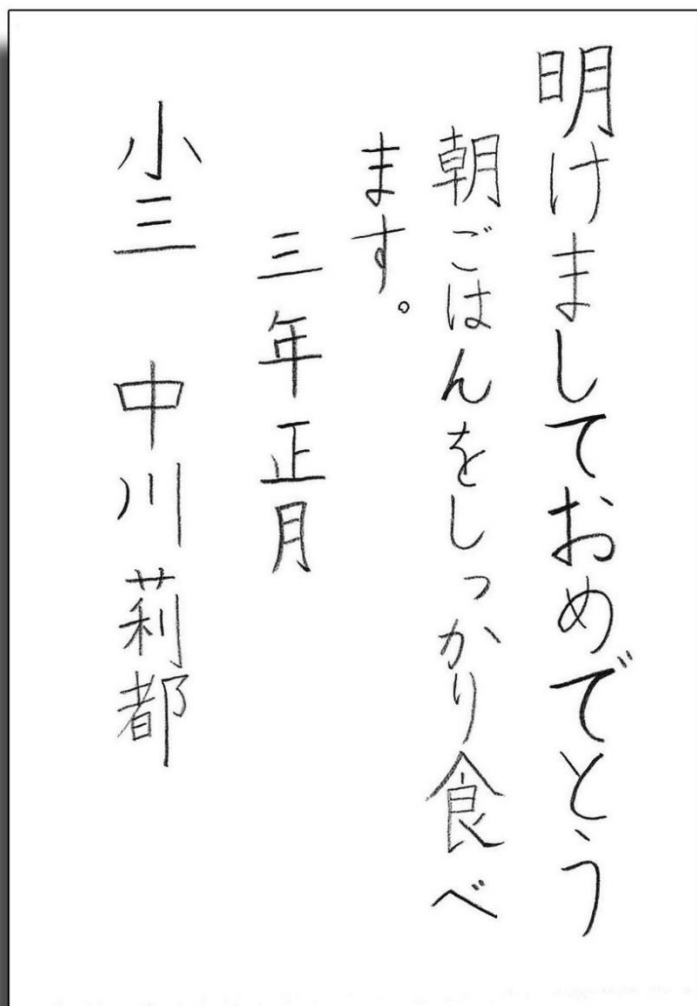 明けましておめでとう
朝ごはんをしっかり食べ
ます。
三年正月
小三 中川莉都